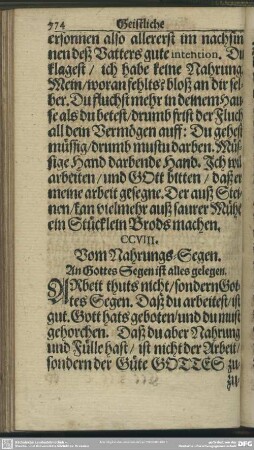 574 Geistliche
ersonnen also allererst im nachsin
nen deß Vatters gute intention. Du
klagest / ich habe keine Nahrung.
Mein / woran fehlts? bloß an dir sel-
ber. Du fluchst mehr in deinem Hau-
se als du betest / drumb frist der Fluch
all dein Vermögen auff: Du gehest
müssig / drumb mustu darben. Müs-
sige Hand darbende Hand. Ich wil
arbeiten / und GOtt bitten / daß er
meine arbeit gesegne. Der auß Stei-
nen / kan vielmehr auß saurer Mühe
ein Stücklein Brods machen.
CCVIII.
Vom Nahrungs-Segen.
An Gottes Segen ist alles gelegen.
ARbeit thuts nicht / sondern Got-
tes Segen. Daß du arbeitest / ist
gut. Gott hats geboten / und du must
gehorchen. Daß du aber Nahrung
und Fülle hast / ist nicht der Arbeit /
sondern der Güte GOTTES zu-
zu
DFG